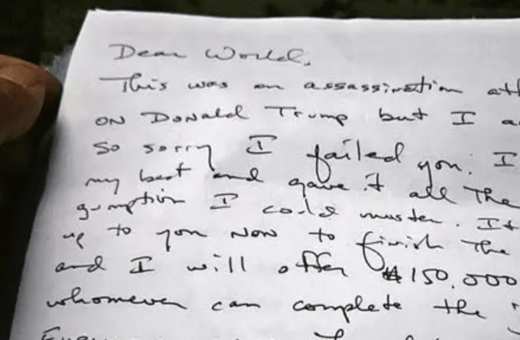 Dear World,
This was an assassination att
on Donald Trump but I a
so sorry I failed you. I
my best and gave it all the
gumption I could muster. It
up to you now to finish the
and I will offer $150,000
whomever can complete the